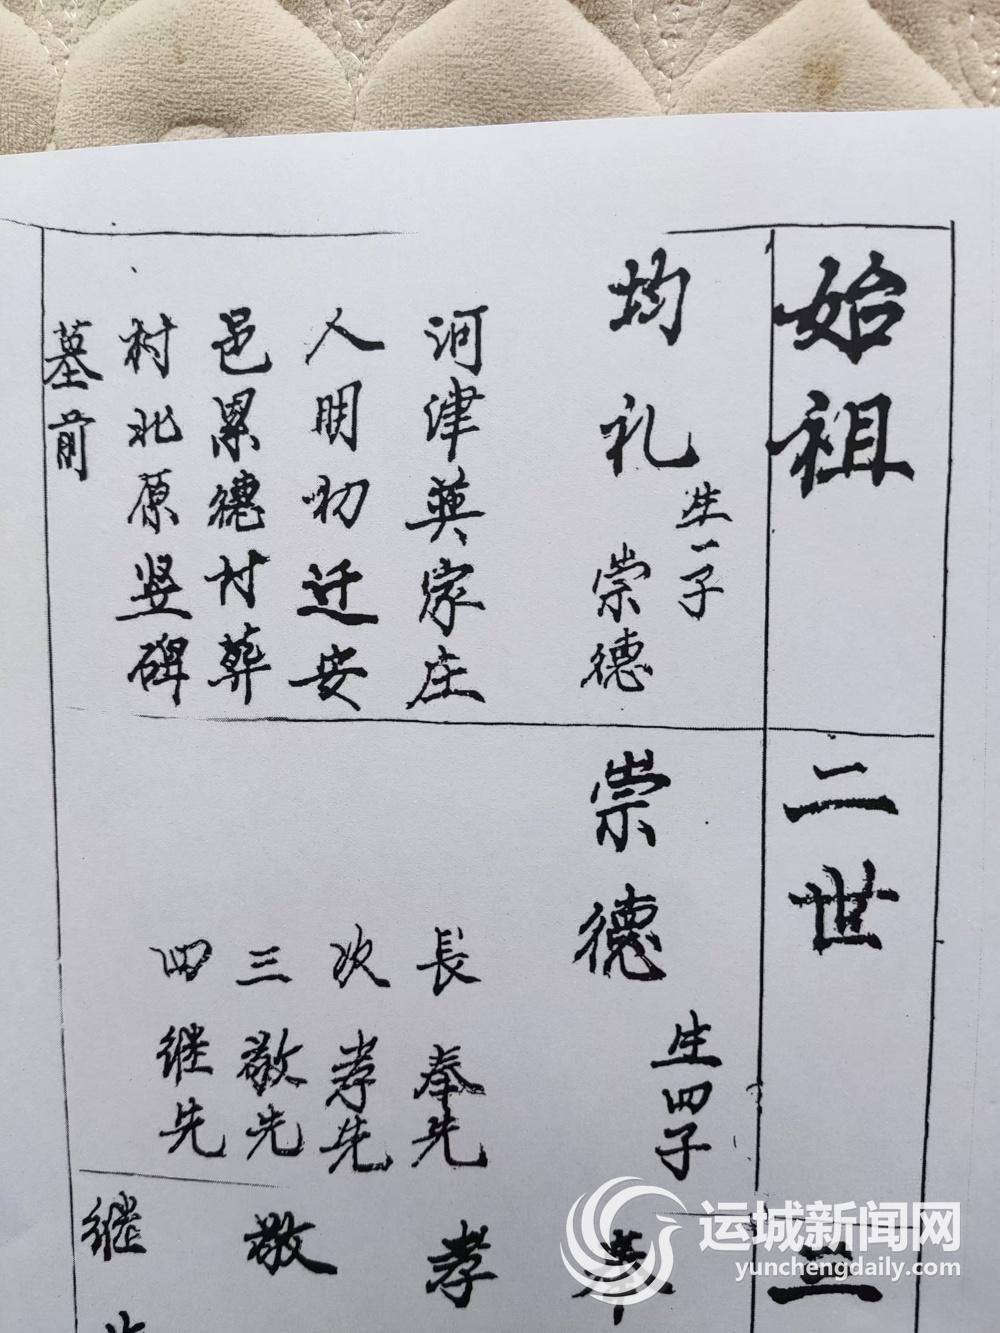 始祖
均礼
生一子
崇德
河津英家庄
人明初迁安
邑累德村葬
村北原竖碑
墓前
二世
崇德
生四子
長奉先
次孝先
三敬先
四继先
三
奉
孝
敬
继
运城新闻网
yunchengdaily.com